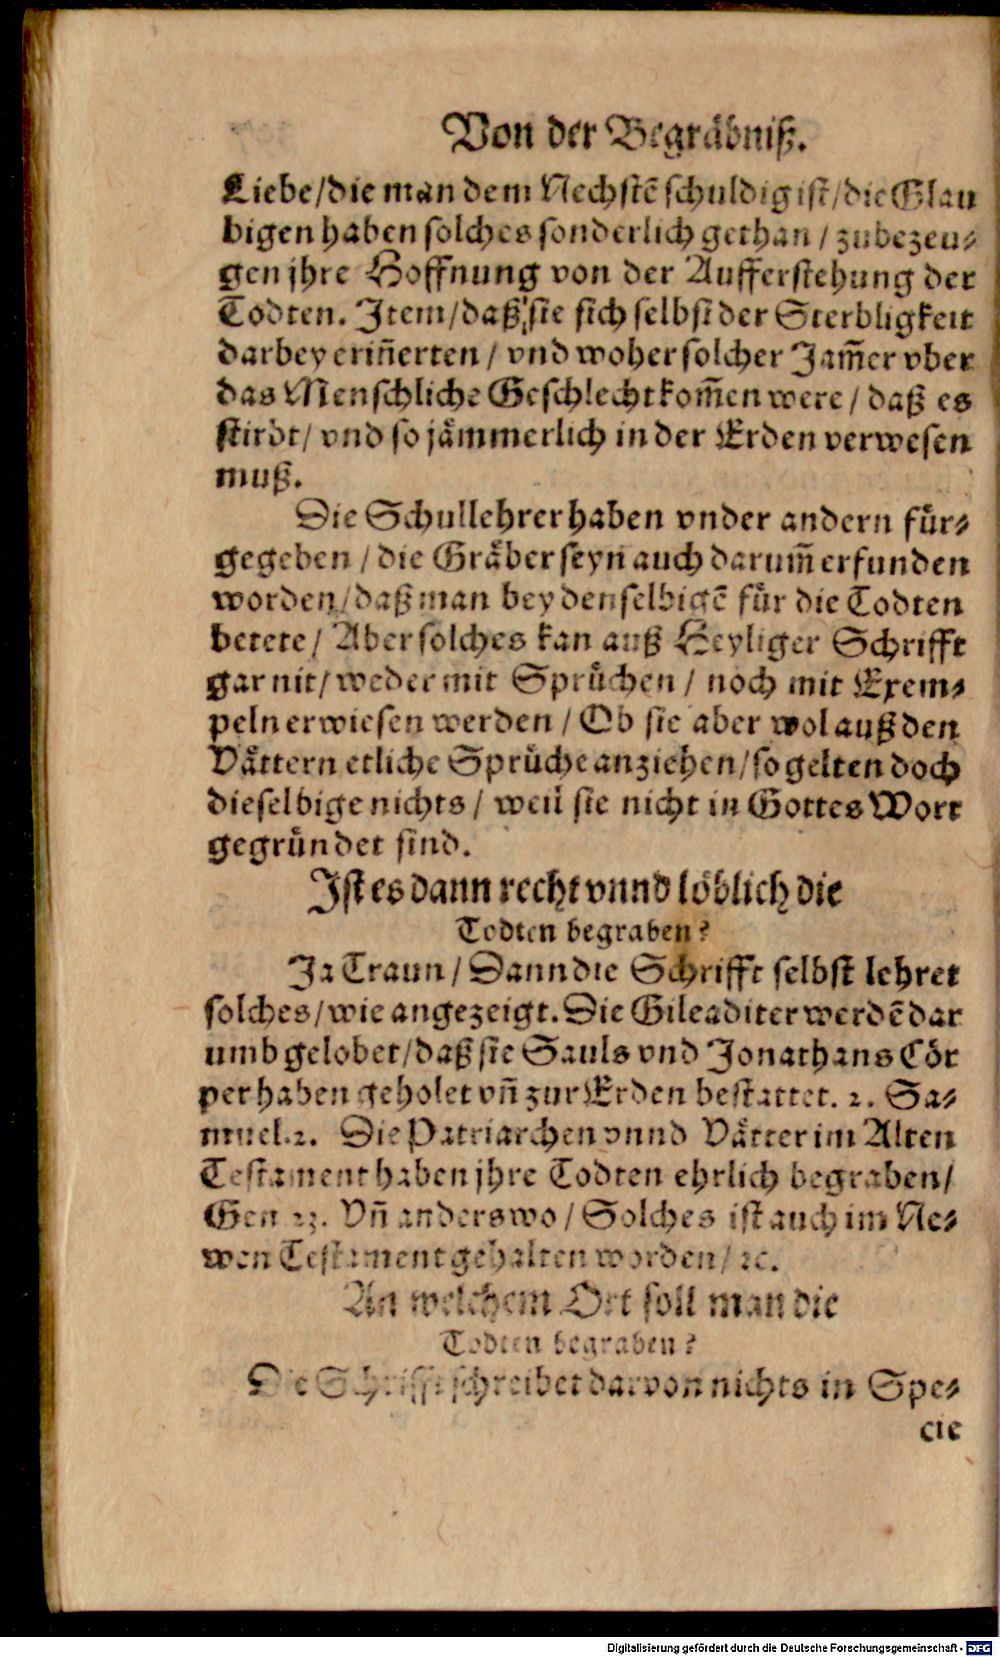 Von der Begräbniß.
Liebe/die man dem Nechstẽ schuldig ist/die Glau
bigen haben solches sonderlich gethan / zubezeu-
gen jhre Hoffnung von der Aufferstehung der
Todten. Item/daß sie sich selbst der Sterbligkeit
darbey eriñerten / vnd woher solcher Jam̃er vber
das Menschliche Geschlecht kom̃en were / daß es
stirbt/ vnd so jämmerlich in der Erden verwesen
muß.
Die Schullehrer haben vnder andern für-
gegeben / die Gräber seyn auch darum̃ erfunden
worden/daß man bey denselbigẽ für die Todten
betete/ Aber solches kan auß Heyliger Schrifft
gar nit/ weder mit Sprüchen / noch mit Exem-
peln erwiesen werden / Ob sie aber wol auß den
Vättern etliche Sprüche anziehen/so gelten doch
dieselbige nichts / weil sie nicht in Gottes Wort
gegründet sind.
Ist es dann recht vnnd löblich die
Todten begraben?
Ja Traun / Dann die Schrifft selbst lehret
solches/wie angezeigt. Die Gileaditer werdẽ dar
umb gelobet/daß sie Sauls vnd Jonathans Cör
per haben geholet vñ zur Erden bestattet. 2. Sa-
muel.2. Die Patriarchen vnnd Vätter im Alten
Testament haben jhre Todten ehrlich begraben/
Gen 23. Vñ anderswo / Solches ist auch im Ne-
wen Testament gehalten worden/ ꝛc.
An welchem Ort soll man die
Todten begraben?
Die Schrifft schreibet darvon nichts in Spe-
cie
Digitalisierung gefördert durch die Deutsche Forschungsgemeinschaft - DFG